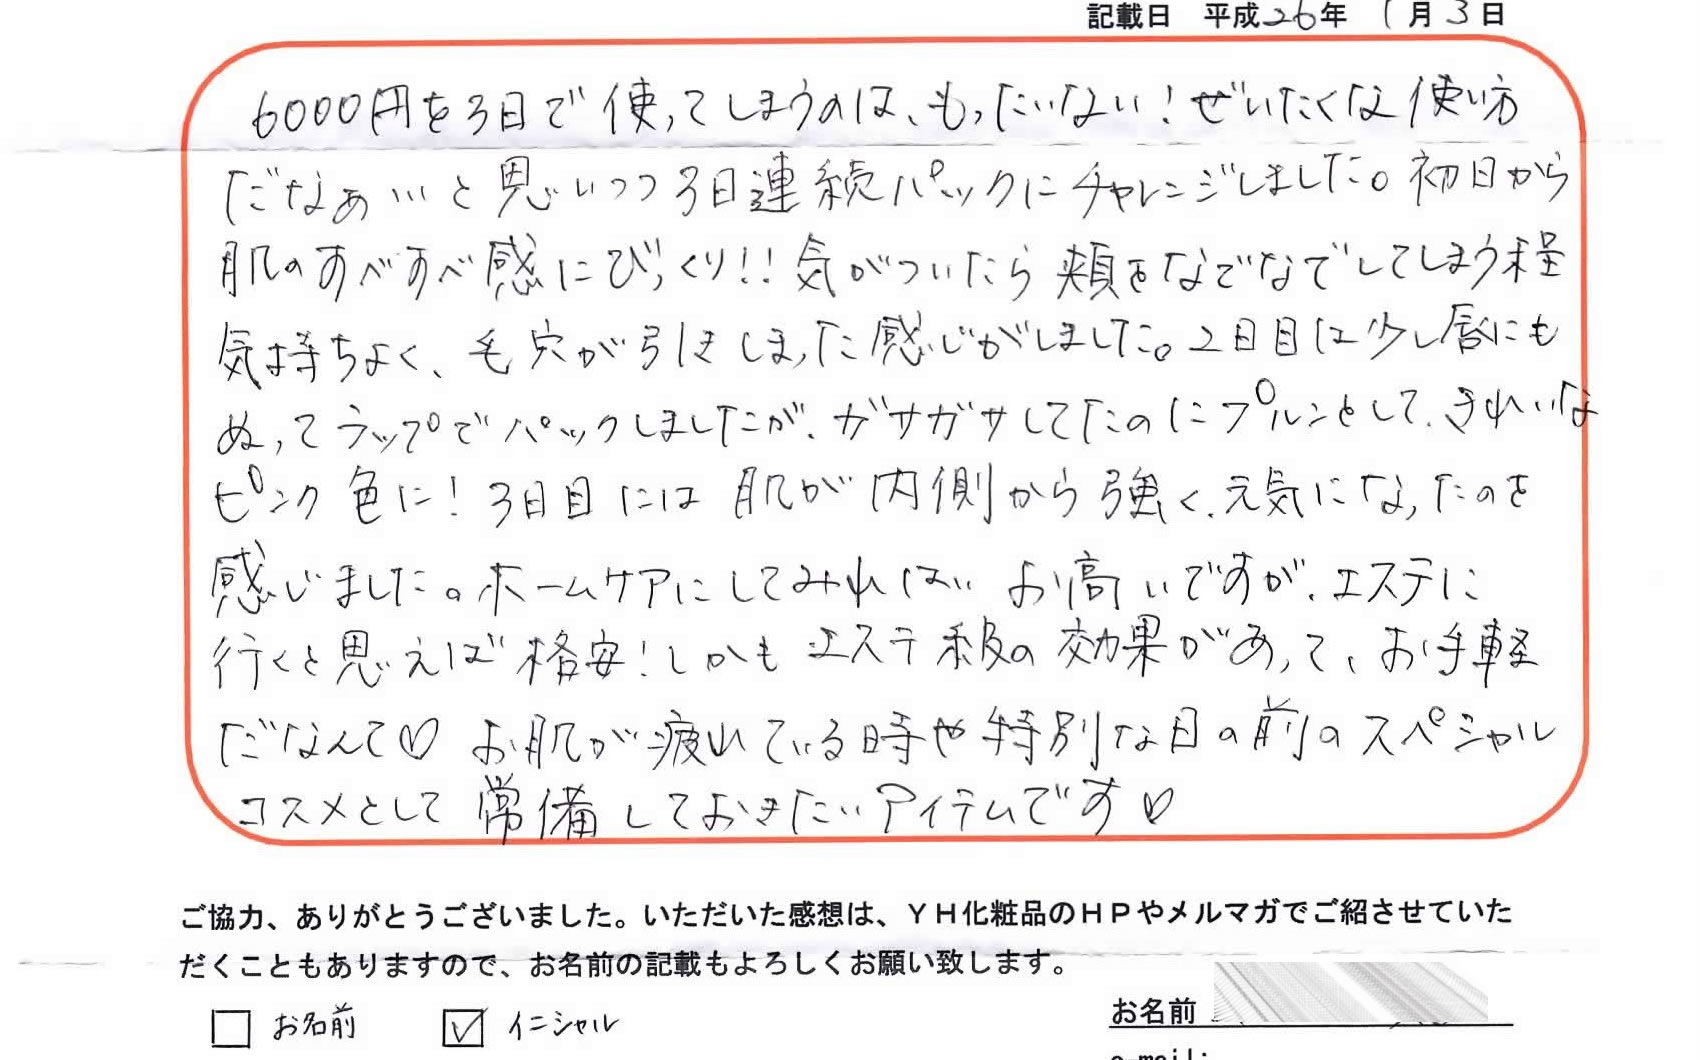 記載日　平成26年　1月3日
6000円を3日で使ってしまうのは、もったいない！ぜいたくな使い方
だなぁ…と思いつつ3日連続パックにチャレンジしました。初日から
肌のすべすべ感にびっくり！！気がついたら頬をなでなでしてしまう程
気持ちよく、毛穴が引きしまった感じがしました。2日目は少し唇にも
ぬってラップでパックしましたが、ガサガサしてたのにプルンとして、きれいな
ピンク色に！3日目には肌が内側から強く、元気になったのを
感じました。ホームケアにしてみればお高いですが、エステに
行くと思えば格安！しかもエステ級の効果があって、お手軽
だなんて♡ お肌が疲れている時や特別な日の前のスペシャル
コスメとして常備しておきたいアイテムです♡
ご協力、ありがとうございました。いただいた感想は、ＹＨ化粧品のＨＰやメルマガでご紹させていた
だくこともありますので、お名前の記載もよろしくお願い致します。
□ お名前　☑ イニシャル
お名前
e-mail: